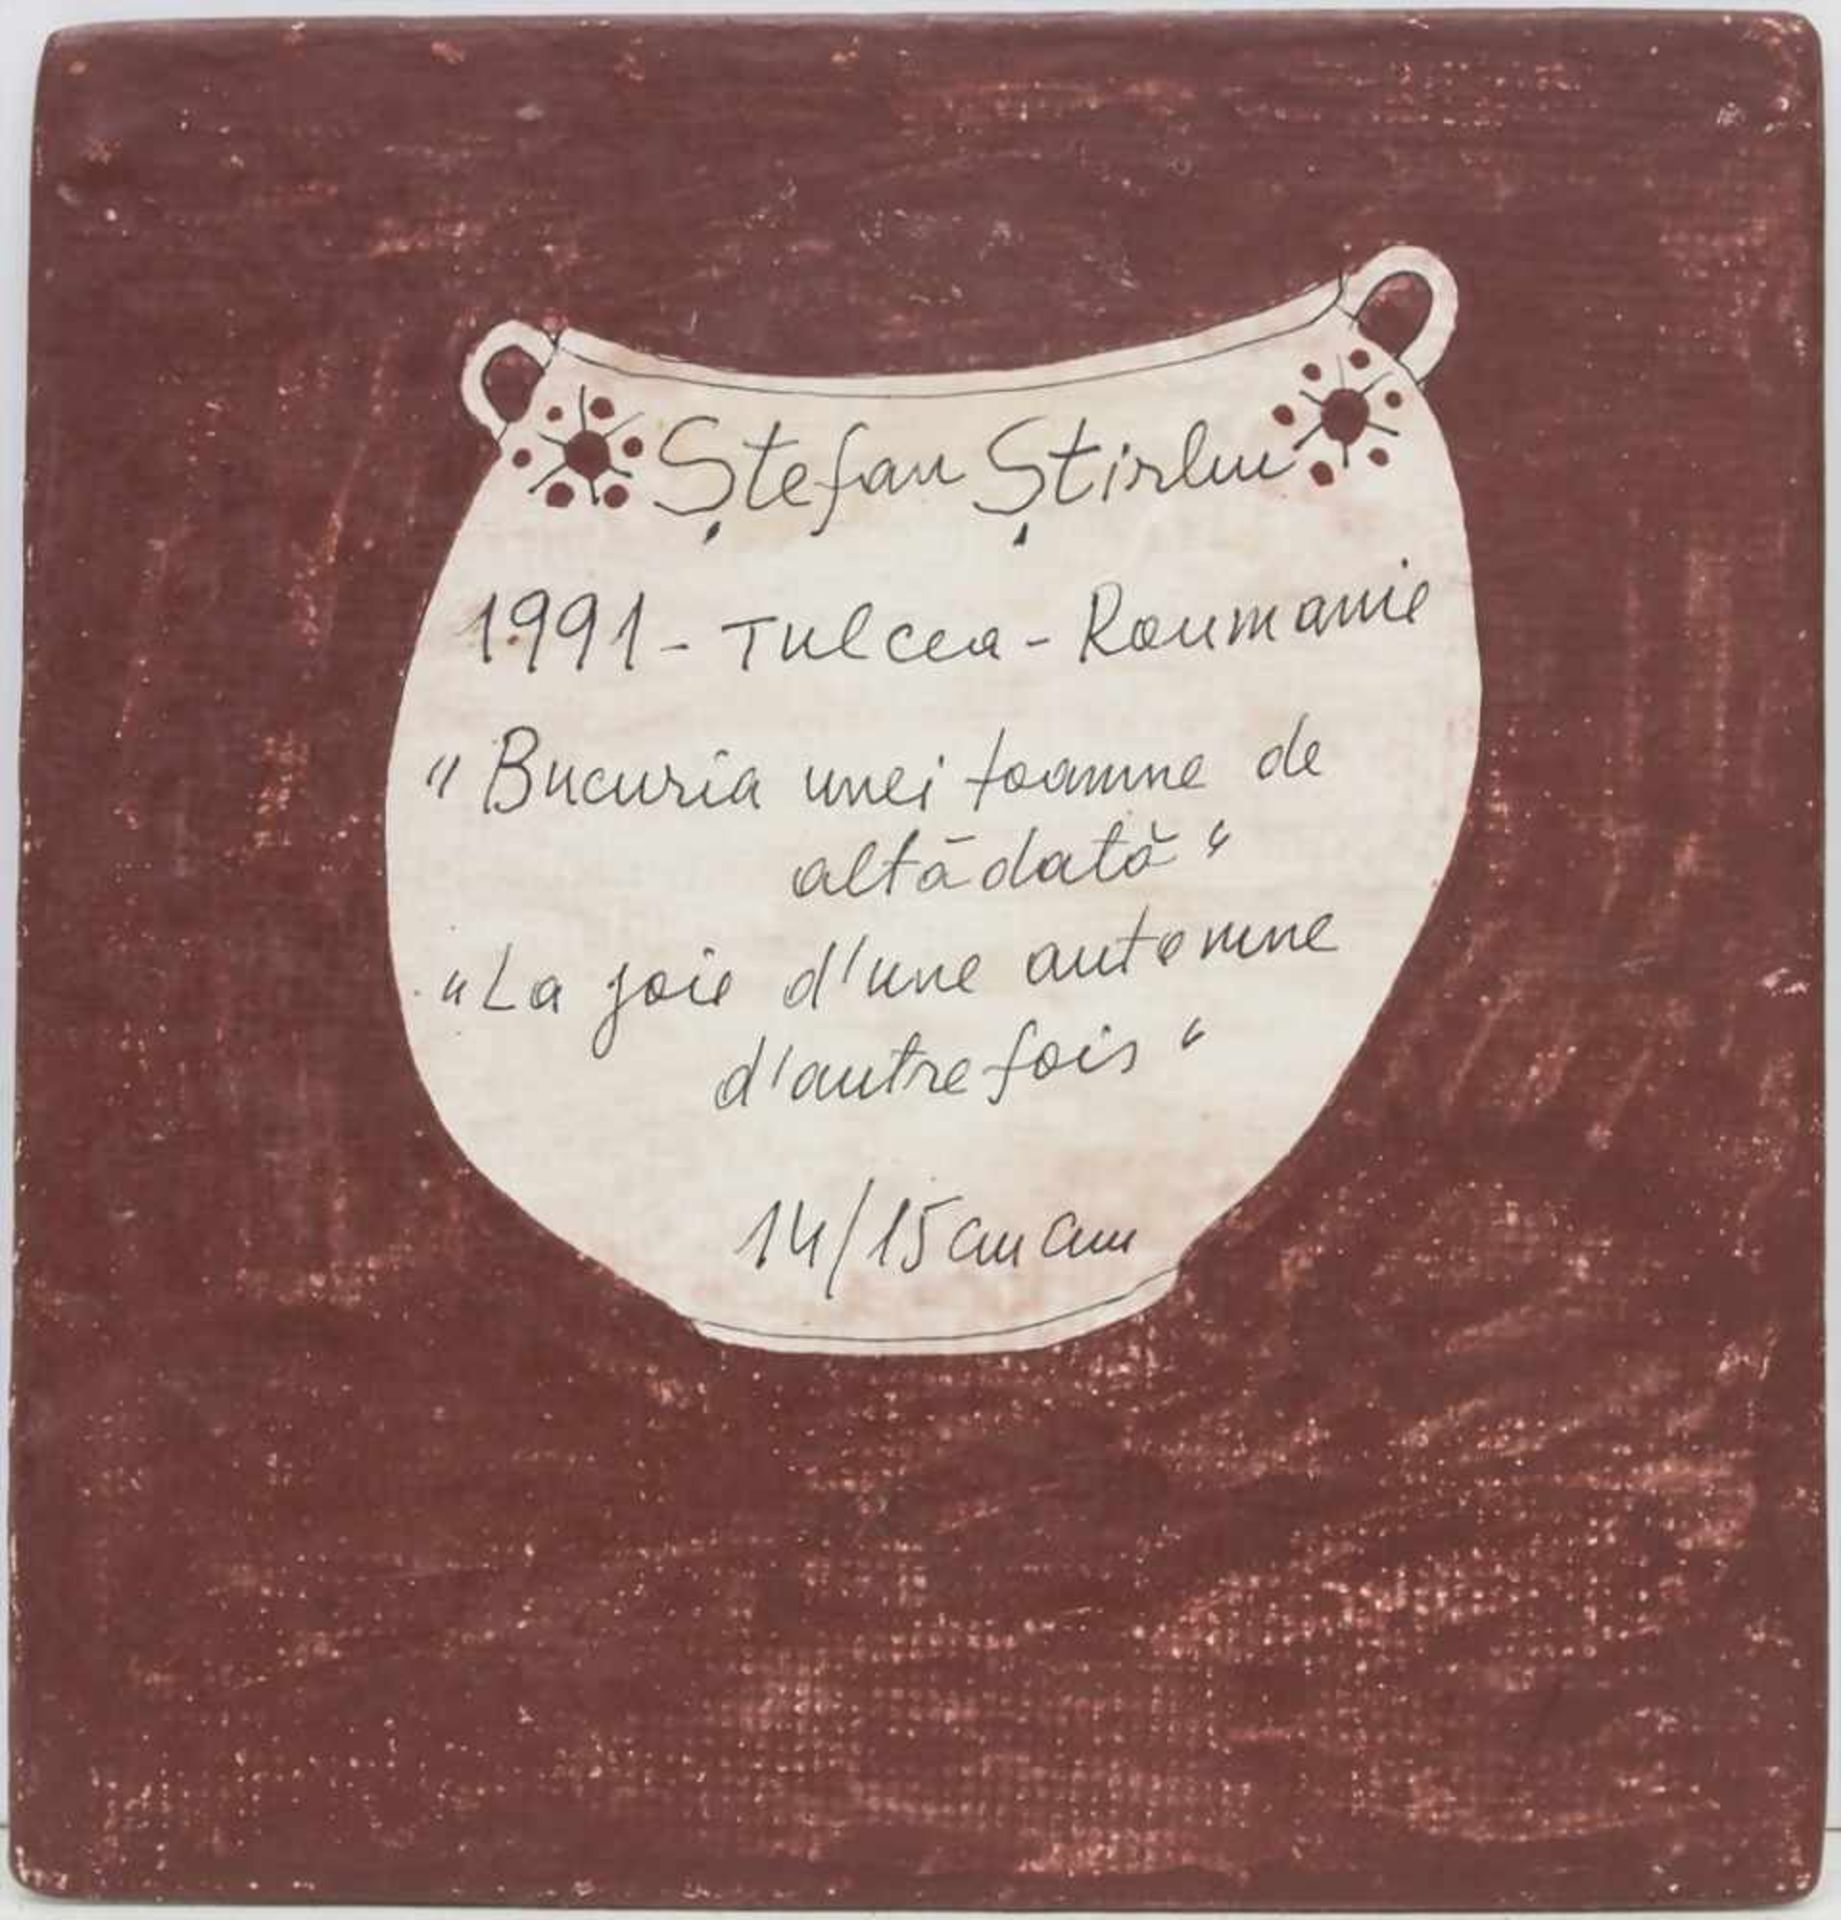 Ștefan Știrbu
1991 - Tulcea - Roumanie
"Bucuria unei toamne de
altădată"
"La joie d'une automne
d'autrefois"
14/15 cm cm